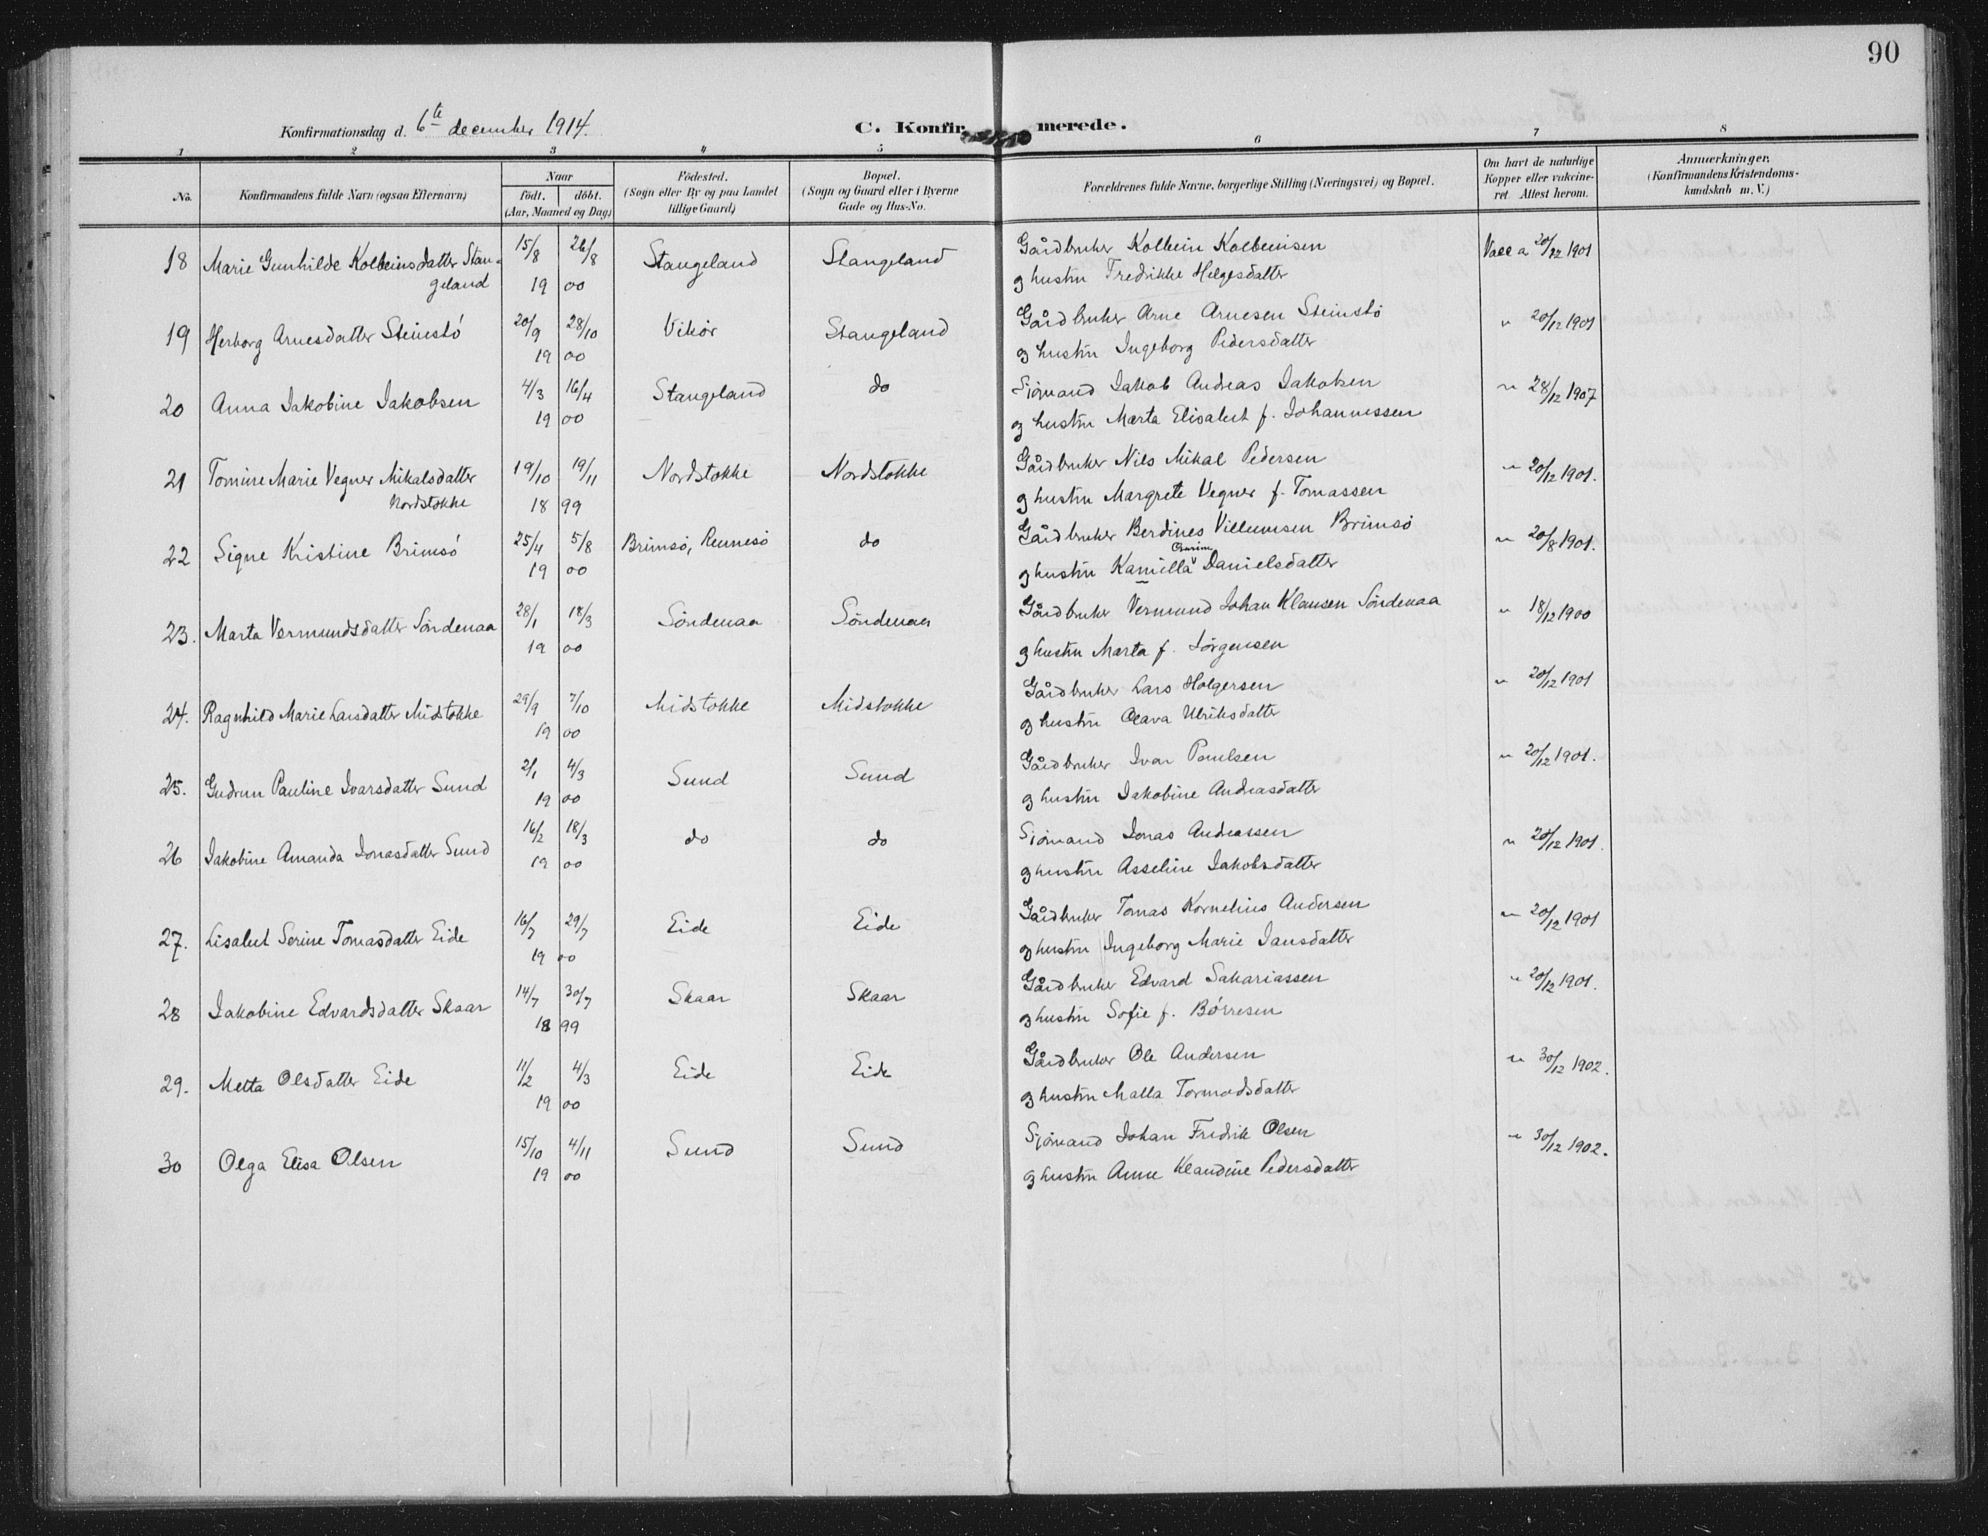 90
Konfirmationsdag d. 6te december 1914.
C. Konfirmerede.
1 2 3 4 5 6 7 8
No.
Konfirmandens fulde Navn (ogsaa Efternavn)
Naar
født. døbt.
(Aar, Maaned og Dag)
Fødested.
(Sogn eller By og paa Landet
tillige Gaard)
Bopæl.
(Sogn og Gaard eller i Byerne
Gade og Hus-No.
Forældrenes fulde Navne, borgerlige Stilling (Næringsvei) og Bopæl.
Om havt de naturlige
Kopper eller vakcine-
ret. Attest herom.
Anmærkninger.
(Konfirmandens Kristendoms-
kundskab m. V.)
18 Marie Gunhilde Kolbeinsdatter Stan- 15/8 26/8 Stangeland Stangeland Gårdbruker Kolbein Kolbeinsen Vacc a 20/12 1901
geland 19 00 og hustru Fredrikke Helgesdatter
19 Herborg Arnesdatter Steinstø 20/9 28/10 Vikør Stangeland Gårdbruker Arne Arnesen Steinstø " 20/12 1901
19 00 og hustru Ingeborg Pedersdatter
20 Anna Jakobine Jakobsen 4/3 16/4 Stangeland do Sjømand Jakob Andreas Jakobsen " 28/12 1907
19 00 og hustru Marta Elisabet f. Johannessen
21 Tomine Marie Vegner Mikalsdatter 19/10 19/11 Nordstokke Nordstokke Gårdbruker Nils Mikal Pedersen " 20/12 1901.
Nordstokke 18 99 og hustru Margrete Vegner f. Tomassen
22 Signe Kristine Brimsø 25/4 5/8 Brimsø, Rennesø do Gårdbruker Berdines Villumsen Brimsø " 20/8 1901.
19 00 og hustru Kamilla Danielsdatter
23. Marta Vermundsdatter Søndenaa 28/1 18/3 Søndenaa Søndenaa Gårdbruker Vermund Johan Klausen Søndenaa " 18/12 1900
19 00 og hustru Marta f. Jørgensen
24. Ragnhild Marie Larsdatter Midstokke 29/9 7/10 Midstokke Midstokke Gårdbruker Lars Holgersen " 20/12 1901
19 00 og hustru Olava Ulriksdatter
25. Gudrun Pauline Ivarsdatter Sund 2/1 4/3 Sund Sund Gårdbruker Ivar Poulsen " 20/12 1901.
19 00 og hustru Jakobine Andreasdatter
26 Jakobine Amanda Jonasdatter Sund 16/2 18/3 do do Sjømand Jonas Andreassen " 20/12 1901.
19 00 og hustru Asseline Jakobsdatter
27. Lisabet Serine Tomasdatter Eide 16/7 29/7 Eide Eide Gårdbruker Tomas Kornelius Andersen " 20/12 1901
19 00 og hustru Ingeborg Marie Jansdatter
28 Jakobine Edvardsdatter Skaar 14/7 30/7 Skaar Skaar Gårdbruker Edvard Sakariassen " 20/12 1901.
18 99 og hustru Sofie f. Børresen
29. Metta Olsdatter Eide 11/2 4/3 Eide Eide Gårdbruker Ole Andersen " 30/12 1902.
19 00 og hustru Malla Tormodsdatter
30 Olga Elisa Olsen 15/10 4/11 Sund Sund Sjømand Johan Fredrik Olsen " 30/12 1902.
19 00 og hustru Anne Klaudine Pedersdatter